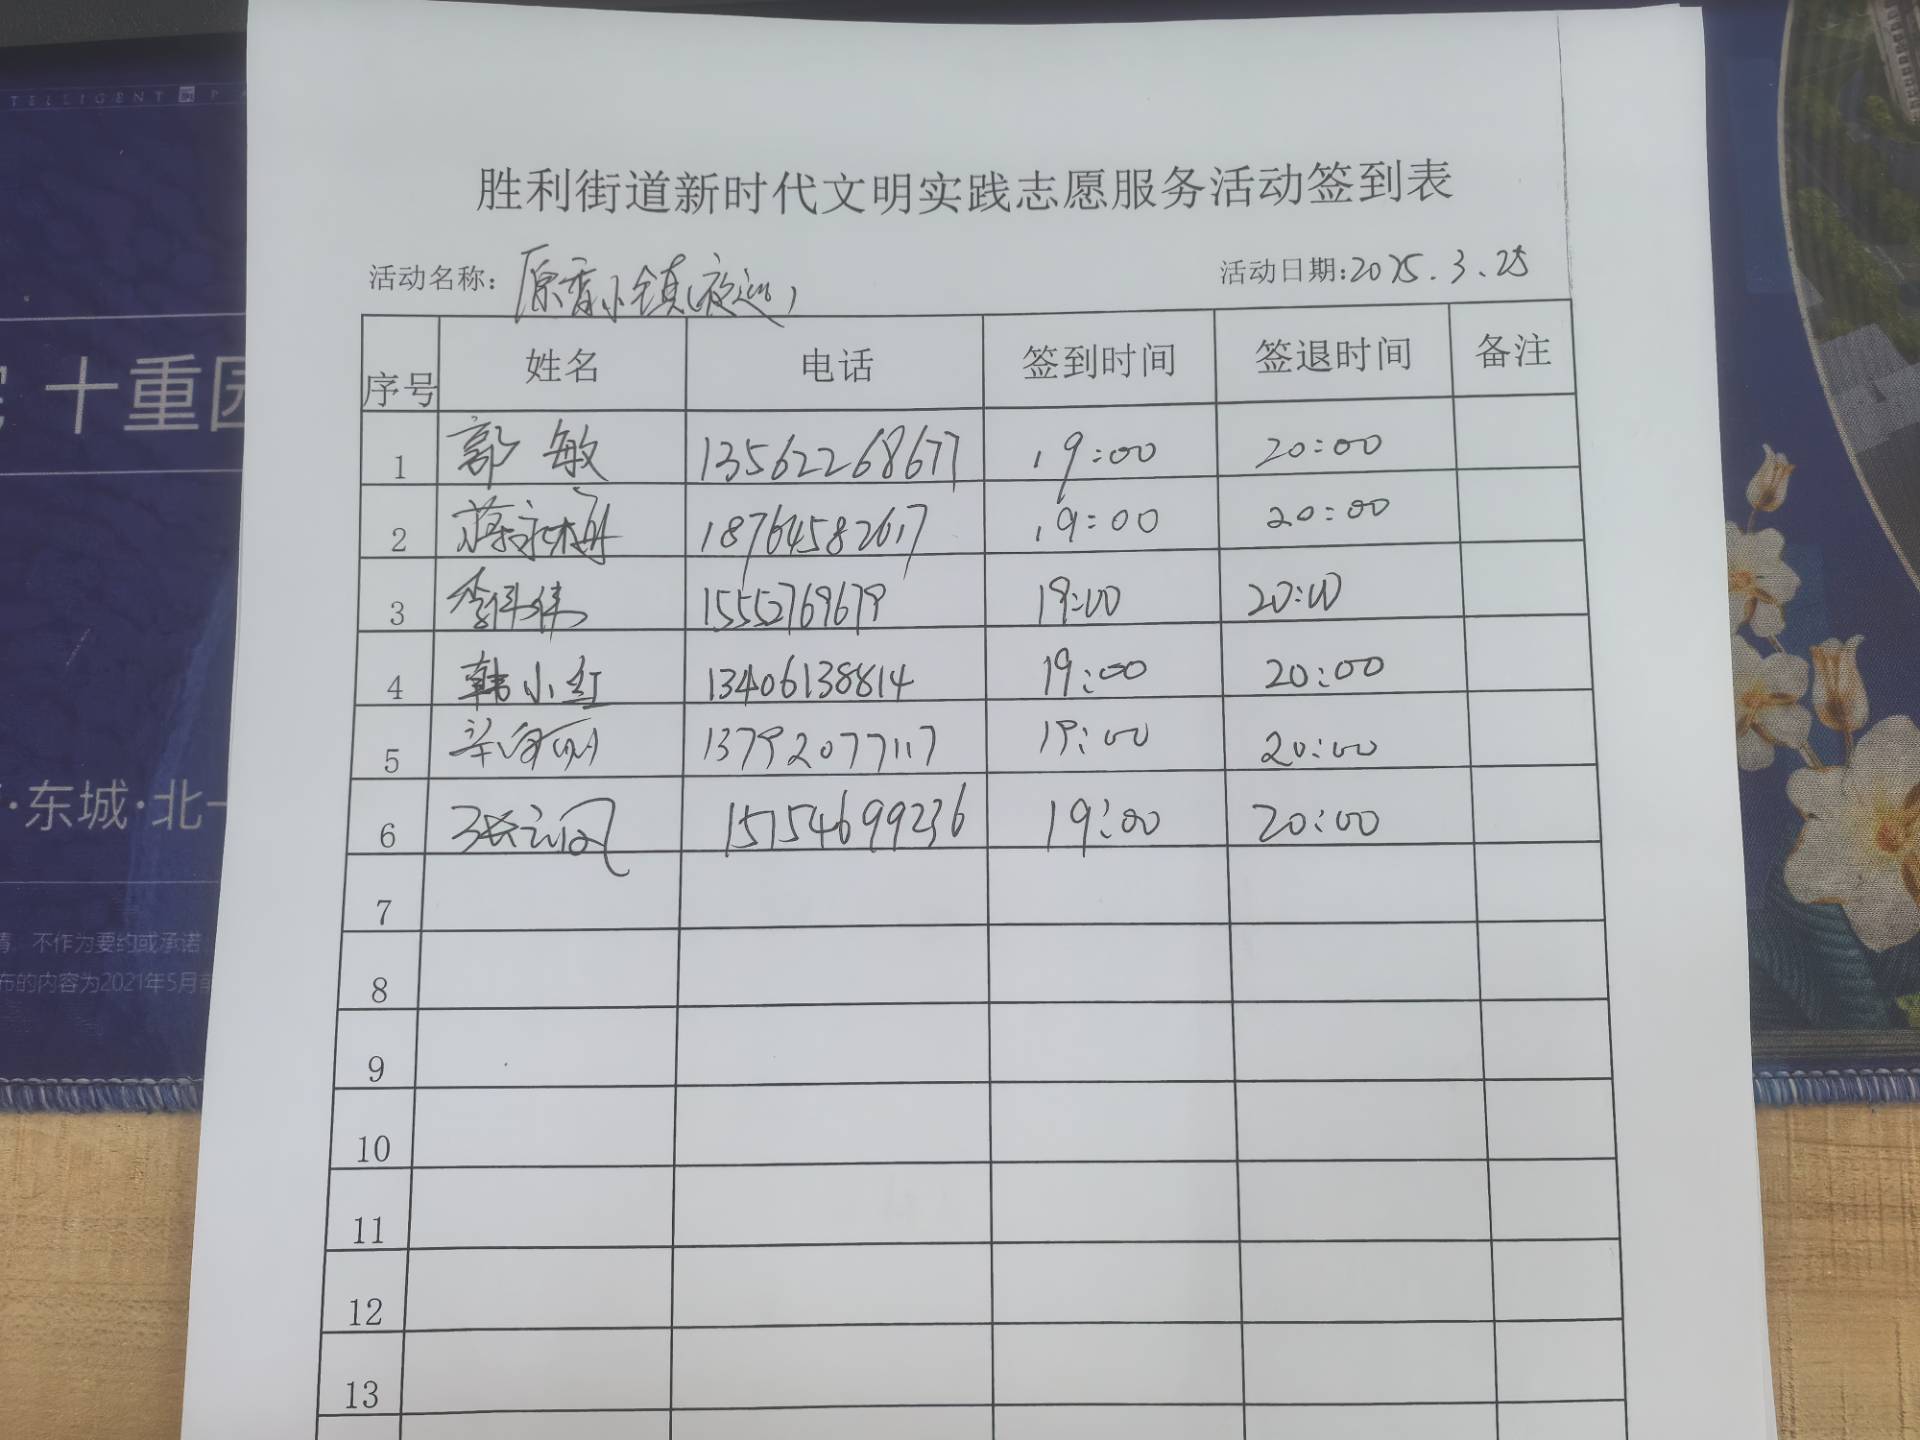 TELLIGENT
胜利街道新时代文明实践志愿服务活动签到表
活动名称: 原香小镇(夜巡) 活动日期:2025.3.25
序号 姓名 电话 签到时间 签退时间 备注
1 郭敏 13562268677 19:00 20:00
2 蒋永梅 18764582617 19:00 20:00
3 李伟 15552769679 19:00 20:00
4 韩小红 13406138814 19:00 20:00
5 13792077117 19:00 20:00
6 张云凤 15154699236 19:00 20:00
7
8
9
10
11
12
13
十重园
·东城·北一
不作为要约或承诺
布的内容为2021年5月前